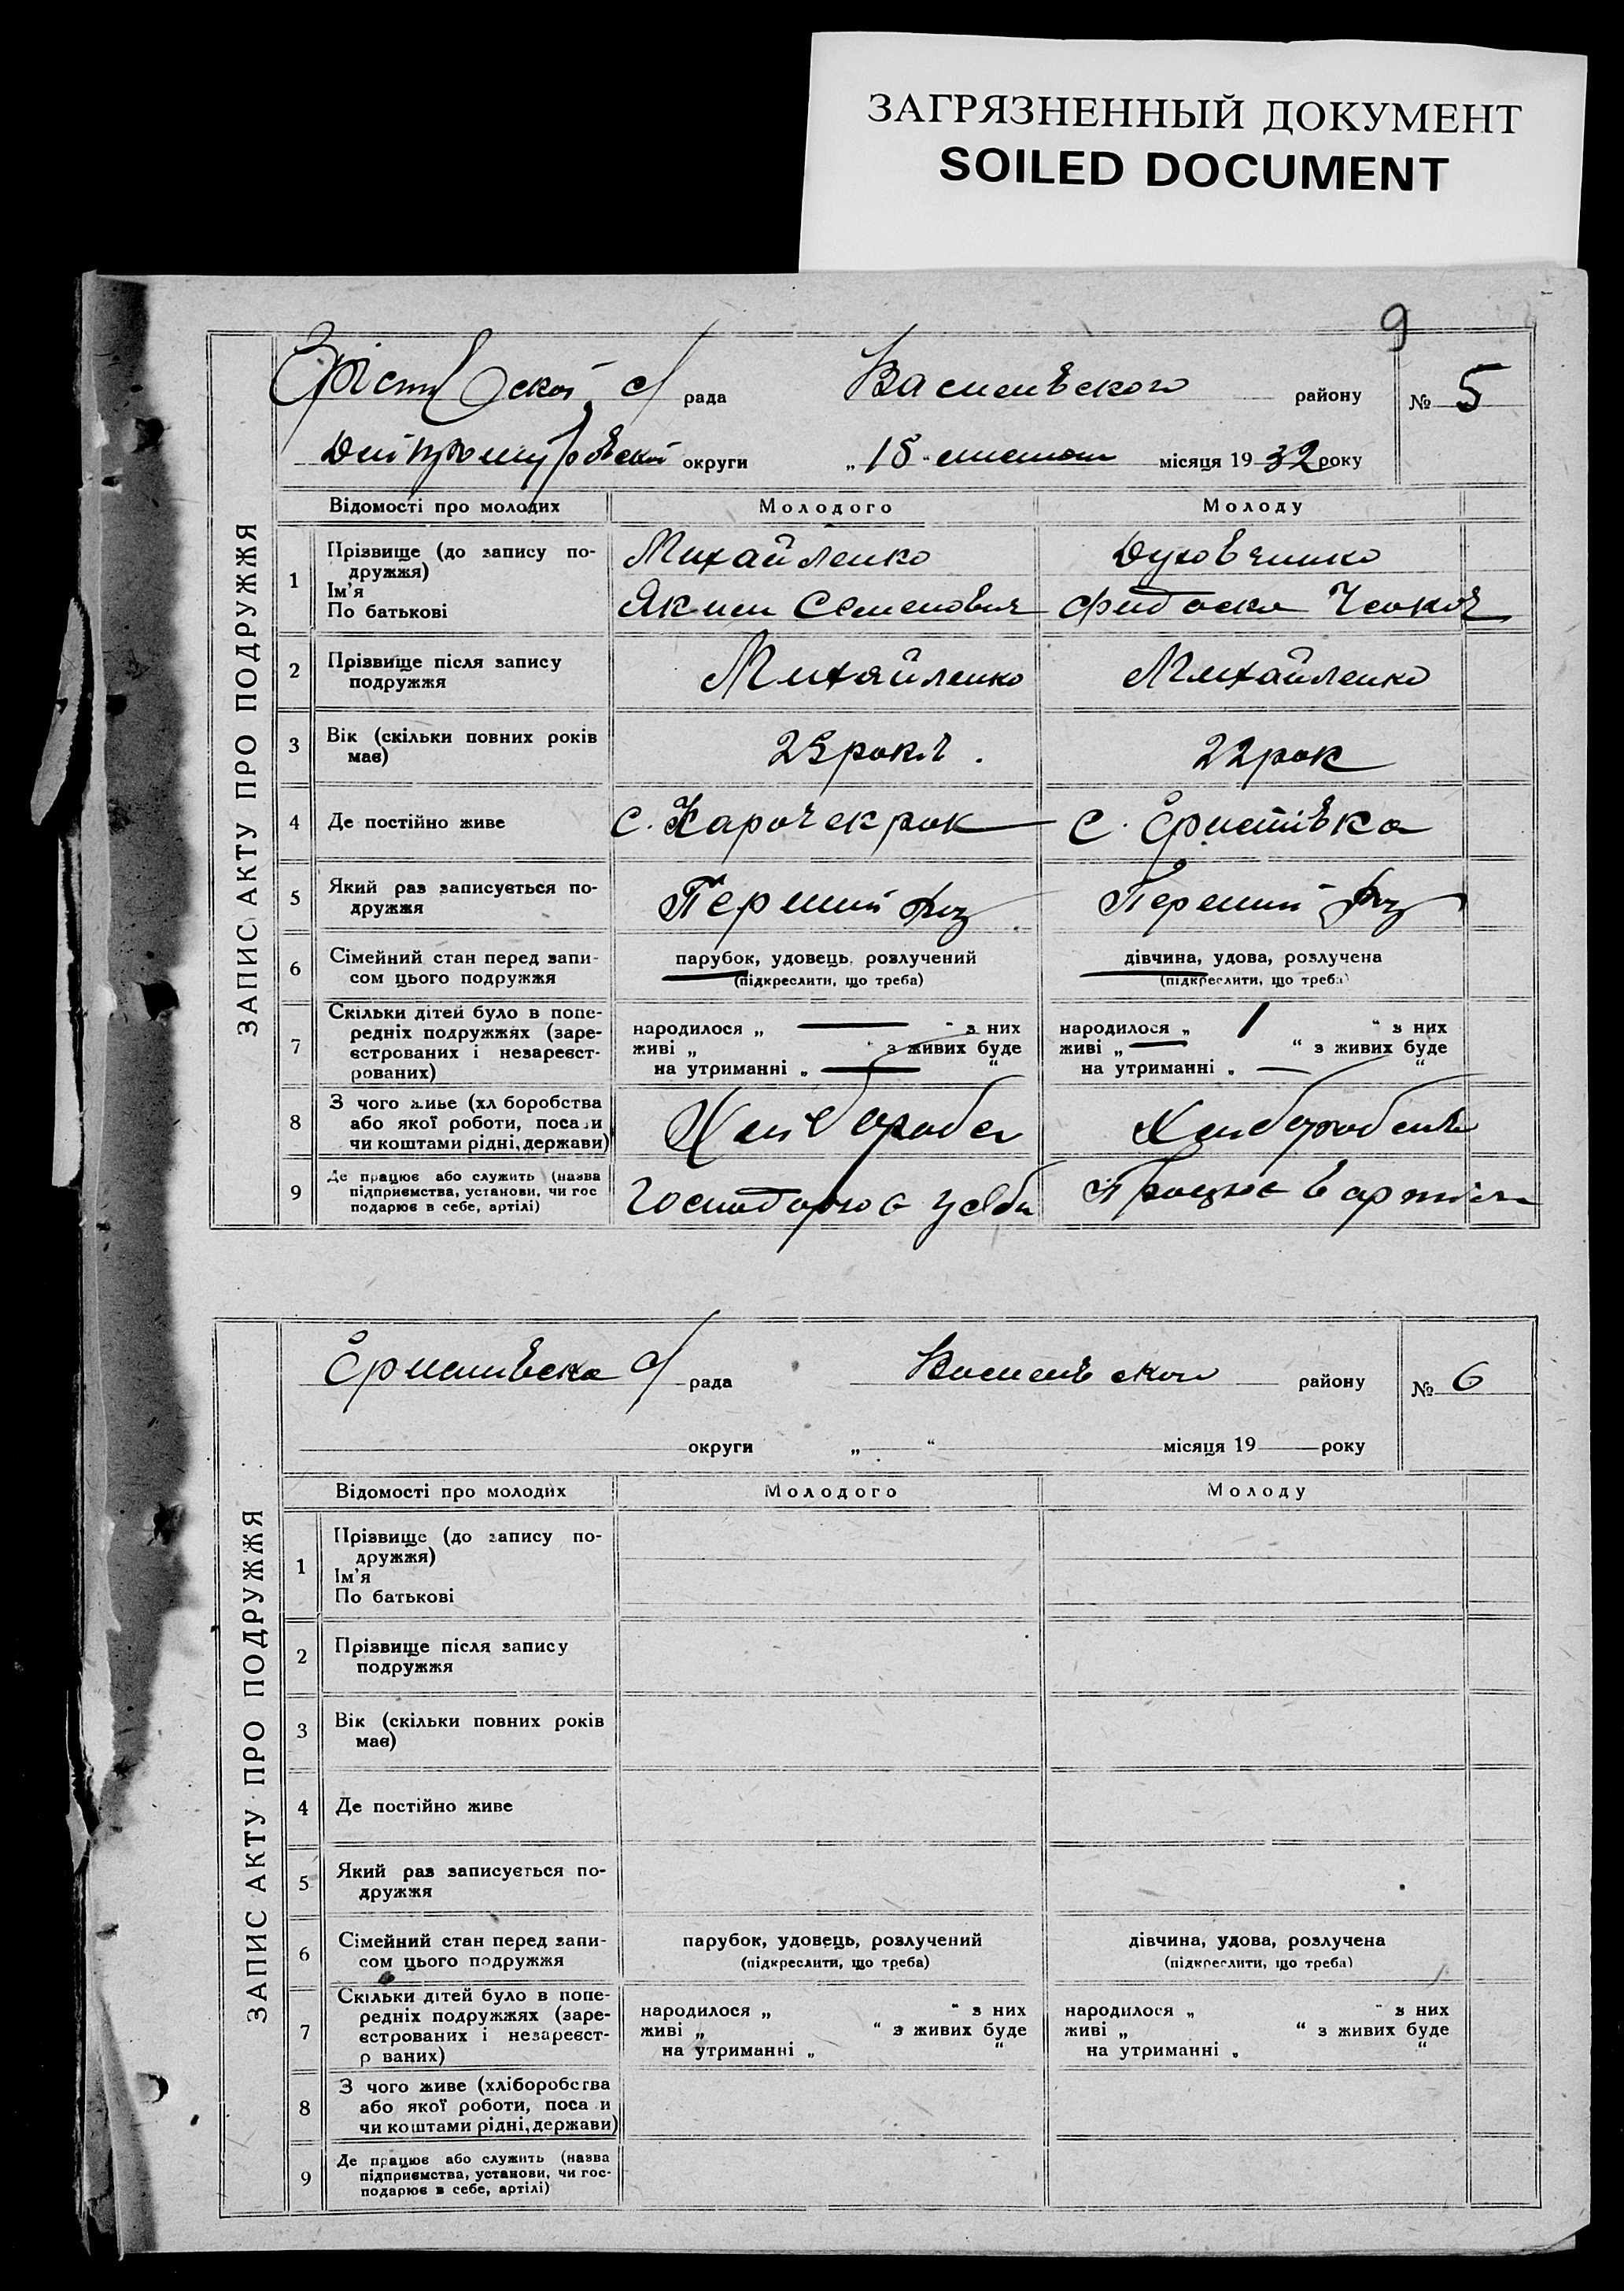 ЗАГРЯЗНЕННЫЙ ДОКУМЕНТ
SOILED DOCUMENT
9
ЗАПИС АКТУ ПРО ПОДРУЖЖЯ
с/рада району № 5
округи „15 місяця 1932 року
Відомості про молодих Молодого Молоду
1 Прізвище (до запису по-
дружжя)
Ім'я
По батькові
Михайленко
Яким Семенович
2 Прізвище після запису
подружжя
Михайленко Михайленко
3 Вік (скільки повних років
має)
22 рок
4 Де постійно живе
с. с. Єристівка
5 Який раз записується по-
дружжя
Перший раз Перший раз
6 Сімейний стан перед запи-
сом цього подружжя
парубок, удовець, розлучений дівчина, удова, розлучена
(підкреслити, що треба) (підкреслити, що треба)
7 Скільки дітей було в попе-
редніх подружжях (заре-
єстрованих і незареєст-
рованих)
народилося „ — “ з них народилося „ “ з них
живі „ “ з живих буде живі „ — “ з живих буде
на утриманні „ — “ на утриманні „ — “
8 З чого живе (хл боробства
або якої роботи, поса и
чи коштами рідні, держави)
9 Де працює або служить (назва
підприємства, установи, чи гос
подарює в себе, артілі)
Працює в
ЗАПИС АКТУ ПРО ПОДРУЖЖЯ
Єристівська с/рада району № 6
округи „ “ місяця 19 року
Відомості про молодих Молодого Молоду
1 Прізвище (до запису по-
дружжя)
Ім'я
По батькові
2 Прізвище після запису
подружжя
3 Вік (скільки повних років
має)
4 Де постійно живе
5 Який раз записується по-
дружжя
6 Сімейний стан перед запи-
сом цього подружжя
парубок, удовець, розлучений дівчина, удова, розлучена
(підкреслити, що треба) (підкреслити, що треба)
7 Скільки дітей було в попе-
редніх подружжях (заре-
єстрованих і незареєст-
р ваних)
народилося „ “ з них народилося „ “ з них
живі „ “ з живих буде живі „ “ з живих буде
на утриманні „ “ на утриманні „ “
8 З чого живе (хліборобства
або якої роботи, поса и
чи коштами рідні, держави)
9 Де працює або служить (назва
підприємства, установи, чи гос-
подарює в себе, артілі)